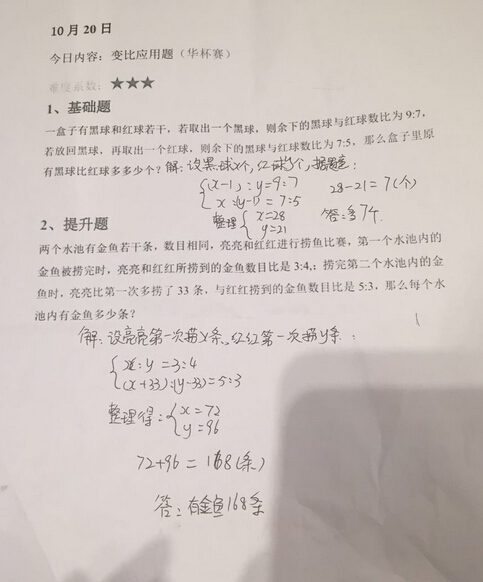 10月20日
今日内容：变比应用题（华杯赛）
难度系数：★★★
1、基础题
一盒子有黑球和红球若干，若取出一个黑球，则余下的黑球与红球数比为 9:7，
若放回黑球，再取出一个红球，则余下的黑球与红球数比为 7:5，那么盒子里原
有黑球比红球多多少个？解：设黑球x个，红球y个，据题意：
{(x-1):y=9:7
x:(y-1)=7:5
28-21=7(个)
整理{x=28
y=21
答：多7个.
2、提升题
两个水池有金鱼若干条，数目相同，亮亮和红红进行捞鱼比赛，第一个水池内的
金鱼被捞完时，亮亮和红红所捞到的金鱼数目比是 3:4,；捞完第二个水池内的金
鱼时，亮亮比第一次多捞了 33 条，与红红捞到的金鱼数目比是 5:3，那么每个水
池内有金鱼多少条？
解：设亮亮第一次捞x条，红红第一次捞y条：
{x:y=3:4
(x+33):(y-33)=5:3
整理得：{x=72
y=96
72+96=168(条)
答：有金鱼168条